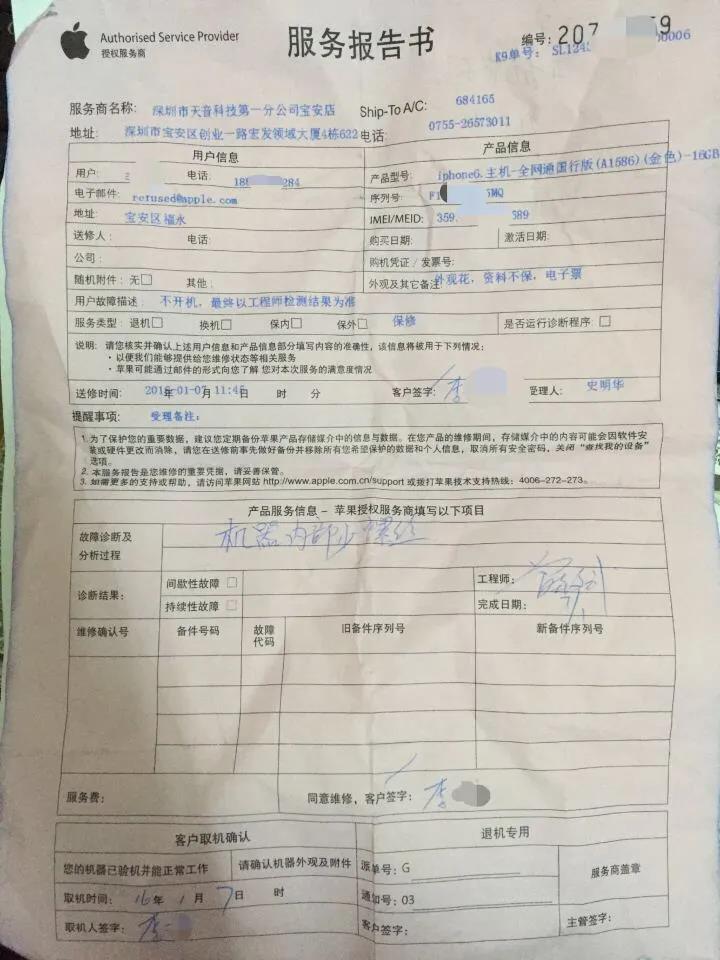 Authorised Service Provider
授权服务商
服务报告书
编号: 207 59
K9单号: SL124 00006
服务商名称: 深圳市天音科技第一分公司宝安店 Ship-To A/C: 684165
地址: 深圳市宝安区创业一路宏发领域大厦4栋622 电话: 0755-26573011
用户信息 产品信息
用户: 电话: 18 284 产品型号: iphone6,主机-全网通国行版(A1586)(金色)-16GB
电子邮件: refused@apple.com 序列号: F1 MQ
地址: 宝安区福永 IMEI/MEID: 359. 589
送修人: 电话: 购买日期: 激活日期:
公司: 购机凭证/发票号:
随机附件: 无□ 其他: 外观及其它备注: 外观花，资料不保，电子票
用户故障描述: 不开机，最终以工程师检测结果为准
服务类型: 退机□ 换机□ 保内□ 保外□ 保修 是否运行诊断程序: □
说明: 请您核实并确认上述用户信息和产品信息部分填写内容的准确性，该信息将被用于下列情况:
• 以便我们能够提供给您维修状态等相关服务
• 苹果可能通过邮件的形式向您了解您对本次服务的满意度情况
送修时间: 2016-01-07 11:45 年 月 日 时 分 客户签字: 李 受理人: 史明华
提醒事项: 受理备注:
1. 为了保护您的重要数据，建议您定期备份苹果产品存储媒介中的信息与数据。在您产品的维修期间，存储媒介中的内容可能会因软件安
装或硬件更改而消除，请您在送修前事先做好备份并移除所有您希望保护的数据和个人信息，取消所有安全密码，关闭“查找我的设备”
选项。
2. 本服务报告是您维修的重要凭据，请妥善保管。
3. 如需更多的支持或帮助，请访问苹果网站 http://www.apple.com.cn/support 或拨打苹果技术支持热线: 4006-272-273。
产品服务信息 – 苹果授权服务商填写以下项目
故障诊断及
分析过程
机器内部少螺丝
诊断结果: 间歇性故障 □ 工程师:
持续性故障 □ 完成日期:
维修确认号 备件号码 故障
代码 旧备件序列号 新备件序列号
服务费: 同意维修，客户签字: 李
客户取机确认 退机专用
您的机器已验机并能正常工作 请确认机器外观及附件 派单号: G 服务商盖章
取机时间: 16年 1月 7日 时 通知号: 03
取机人签字: 李 客户签字: 主管签字: